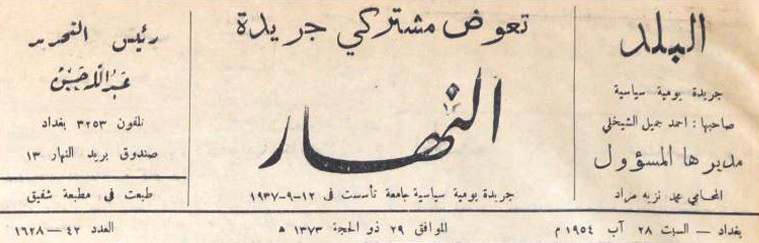 البلد
جريدة يومية سياسية
صاحبها : احمد جميل الشيخلي
مديرها المسؤول
المحامي محمد نزيه مراد
تعوض مشتركي جريدة
النهار
جريدة يومية سياسية جامعة تأسست في ١٢-٩-١٩٣٧
رئيس التحرير
عبدالله حسين
تلفون ٣٢٥٣ بغداد
صندوق بريد النهار ١٣
طبعت في مطبعة شفيق
بغداد — السبت ٢٨ آب ١٩٥٤ م الموافق ٢٩ ذو الحجة ١٣٧٣ ه العدد ٤٢ — ١٦٢٨